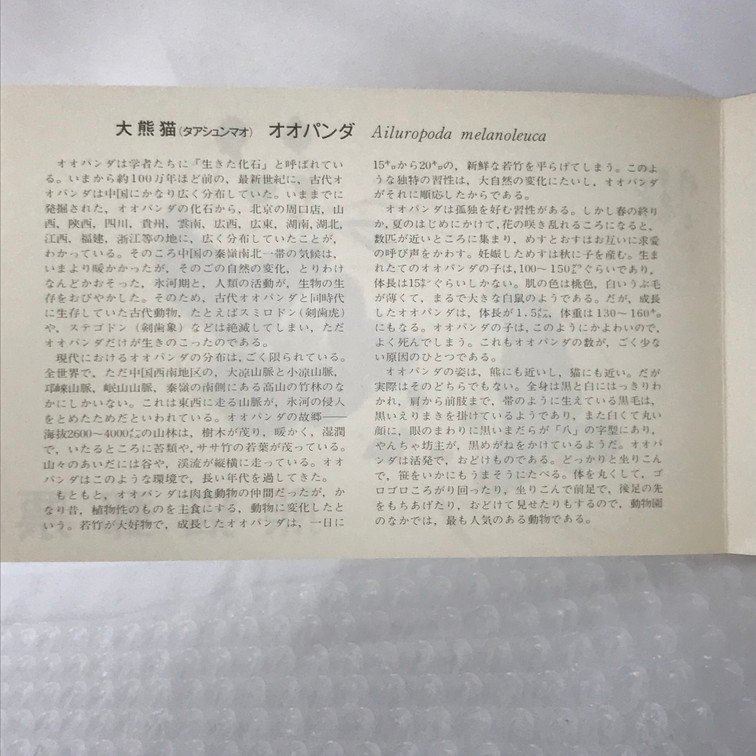 大熊猫(タアシュンマオ) オオパンダ Ailuropoda melanoleuca
オオパンダは学者たちに「生きた化石」と呼ばれてい
る。いまから約100万年ほど前の、最新世紀に、古代オ
オパンダは中国にかなり広く分布していた。いままでに
発掘された、オオパンダの化石から、北京の周口店、山
西、陝西、四川、貴州、雲南、広西、広東、湖南、湖北、
江西、福建、浙江等の地に、広く分布していたことが、
わかっている。そのころ中国の秦嶺南北一帯の気候は、
いまより暖かかったが、そのごの自然の変化、とりわけ
なんどかおそった、氷河期と、人類の活動が、生物の生
存をおびやかした。そのため、古代オオパンダと同時代
に生存していた古代動物、たとえばスミロドン(剣歯虎)
や、ステゴドン(剣歯象)などは絶滅してしまい、ただ
オオパンダだけが生きのこったのである。
現代におけるオオパンダの分布は、ごく限られている。
全世界で、ただ中国西南地区の、大凉山脈と小凉山脈、
邛崍山脈、岷山山脈、秦嶺の南側にある高山の竹林のな
かにしかいない。これは東西に走る山脈が、氷河の侵入
をとめたためだといわれている。オオパンダの故郷——
海抜2600〜4000㍍の山林は、樹木が茂り、暖かく、湿潤
で、いたるところに苔類や、ササ竹の若葉が茂っている。
山々のあいだには谷や、渓流が縦横に走っている。オオ
パンダはこのような環境で、長い年代を過してきた。
もともと、オオパンダは肉食動物の仲間だったが、か
なり昔、植物性のものを主食にする、動物に変化したと
いう。若竹が大好物で、成長したオオパンダは、一日に
15㌔から20㌔の、新鮮な若竹を平らげてしまう。このよ
うな独特の習性は、大自然の変化にたいし、オオパンダ
がそれに順応したからである。
オオパンダは孤独を好む習性がある。しかし春の終り
か、夏のはじめにかけて、花の咲き乱れるころになると、
数匹が近いところに集まり、めすとおすはお互いに求愛
の呼び声をかわす。妊娠しためすは秋に子を産む。生ま
れたてのオオパンダの子は、100〜150㌘ぐらいであり、
体長は15㌢ぐらいしかない。肌の色は桃色、白いうぶ毛
が薄くて、まるで大きな白鼠のようである。だが、成長
したオオパンダは、体長が1.5㍍、体重は130〜160㌔
にもなる。オオパンダの子は、このようにかよわいので、
よく死んでしまう。これもオオパンダの数が、ごく少な
い原因のひとつである。
オオパンダの姿は、熊にも近いし、猫にも近い。だが
実際はそのどちらでもない。全身は黒と白にはっきりわ
かれ、肩から前肢まで、帯のように生えている黒毛は、
黒いえりまきを掛けているようであり、また白くて丸い
顔に、眼のまわりに黒いまだらが「八」の字型にあり、
やんちゃ坊主が、黒めがねをかけているようだ。オオパ
ンダは活発で、おどけものである。どっかりと坐りこん
で、笹をいかにもうまそうにたべる。体を丸くして、ゴ
ロゴロころがり回ったり、坐りこんで前足で、後足の先
をもちあげたり、おどけて見せたりもするので、動物園
のなかでは、最も人気のある動物である。